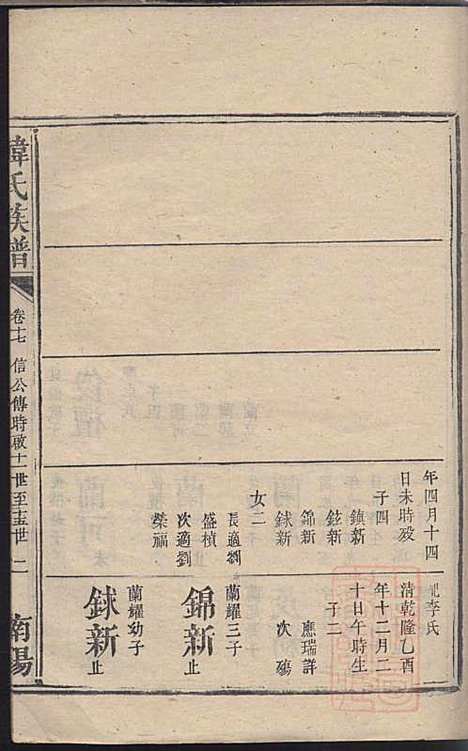 年四月十四
日未時歿
子四
鎮新
鉉新
錦新
銶新
女二
長適劉
盛楨
次適劉
榮福
配李氏
清乾隆乙酉
年十二月二
十日午時生
子二
應瑞詳
次殤
蘭耀三子
錦新止
蘭耀幼子
銶新止
韓氏族譜
卷十七 信公傳時啟十一世至十五世 二
南陽